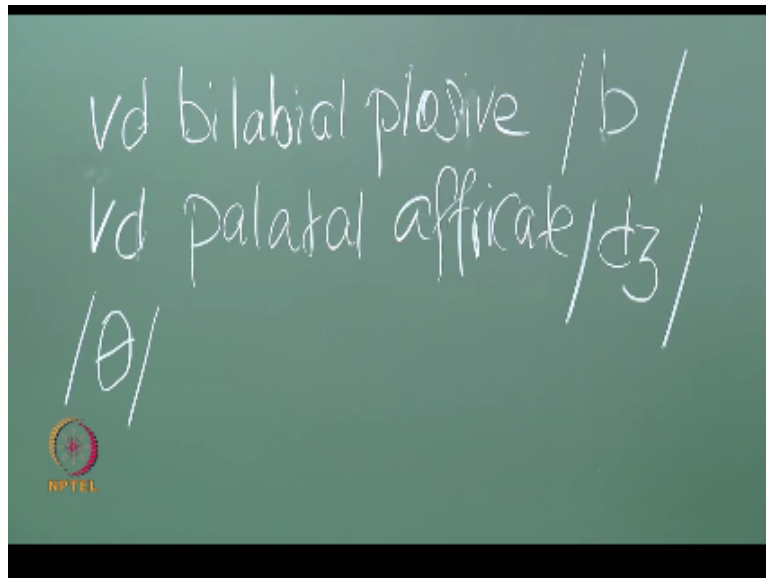 vd bilabial plosive /b/
vd palatal affricate /dʒ/
/θ/
NPTEL